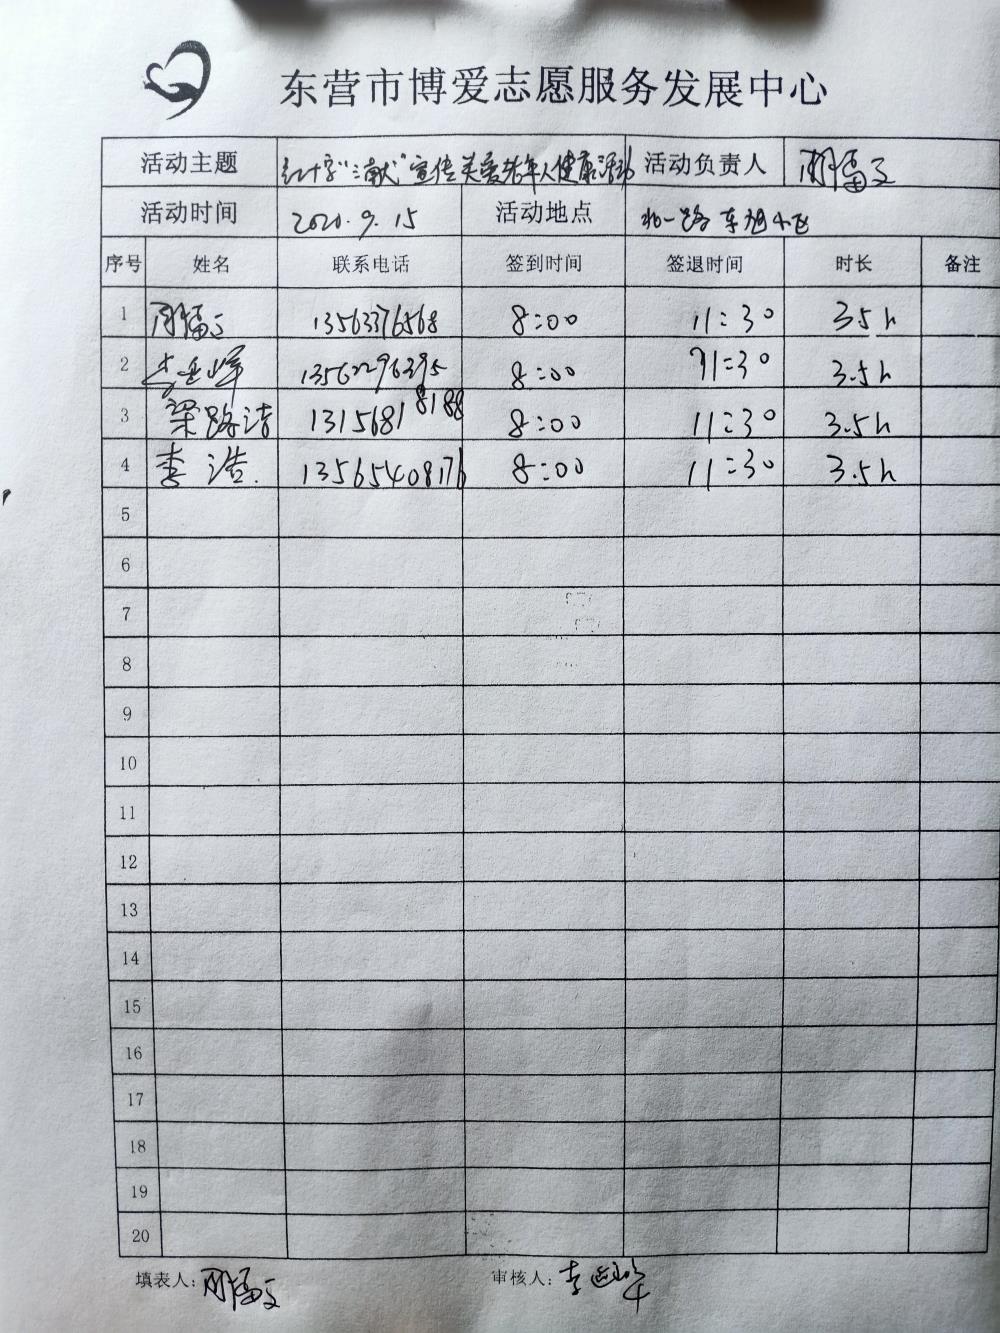 东营市博爱志愿服务发展中心
活动主题 红十字“三献”宣传关爱老年人健康活动 活动负责人 周福文
活动时间 2020.9.15 活动地点 北一路东旭小区
序号 姓名 联系电话 签到时间 签退时间 时长 备注
1 周福文 13563376568 8:00 11:30 3.5h
2 13562296395 8:00 11:30 3.5h
3 梁路涛 13156818188 8:00 11:30 3.5h
4 李浩 13565408176 8:00 11:30 3.5h
5
6
7
8
9
10
11
12
13
14
15
16
17
18
19
20
填表人:周福文 审核人:李